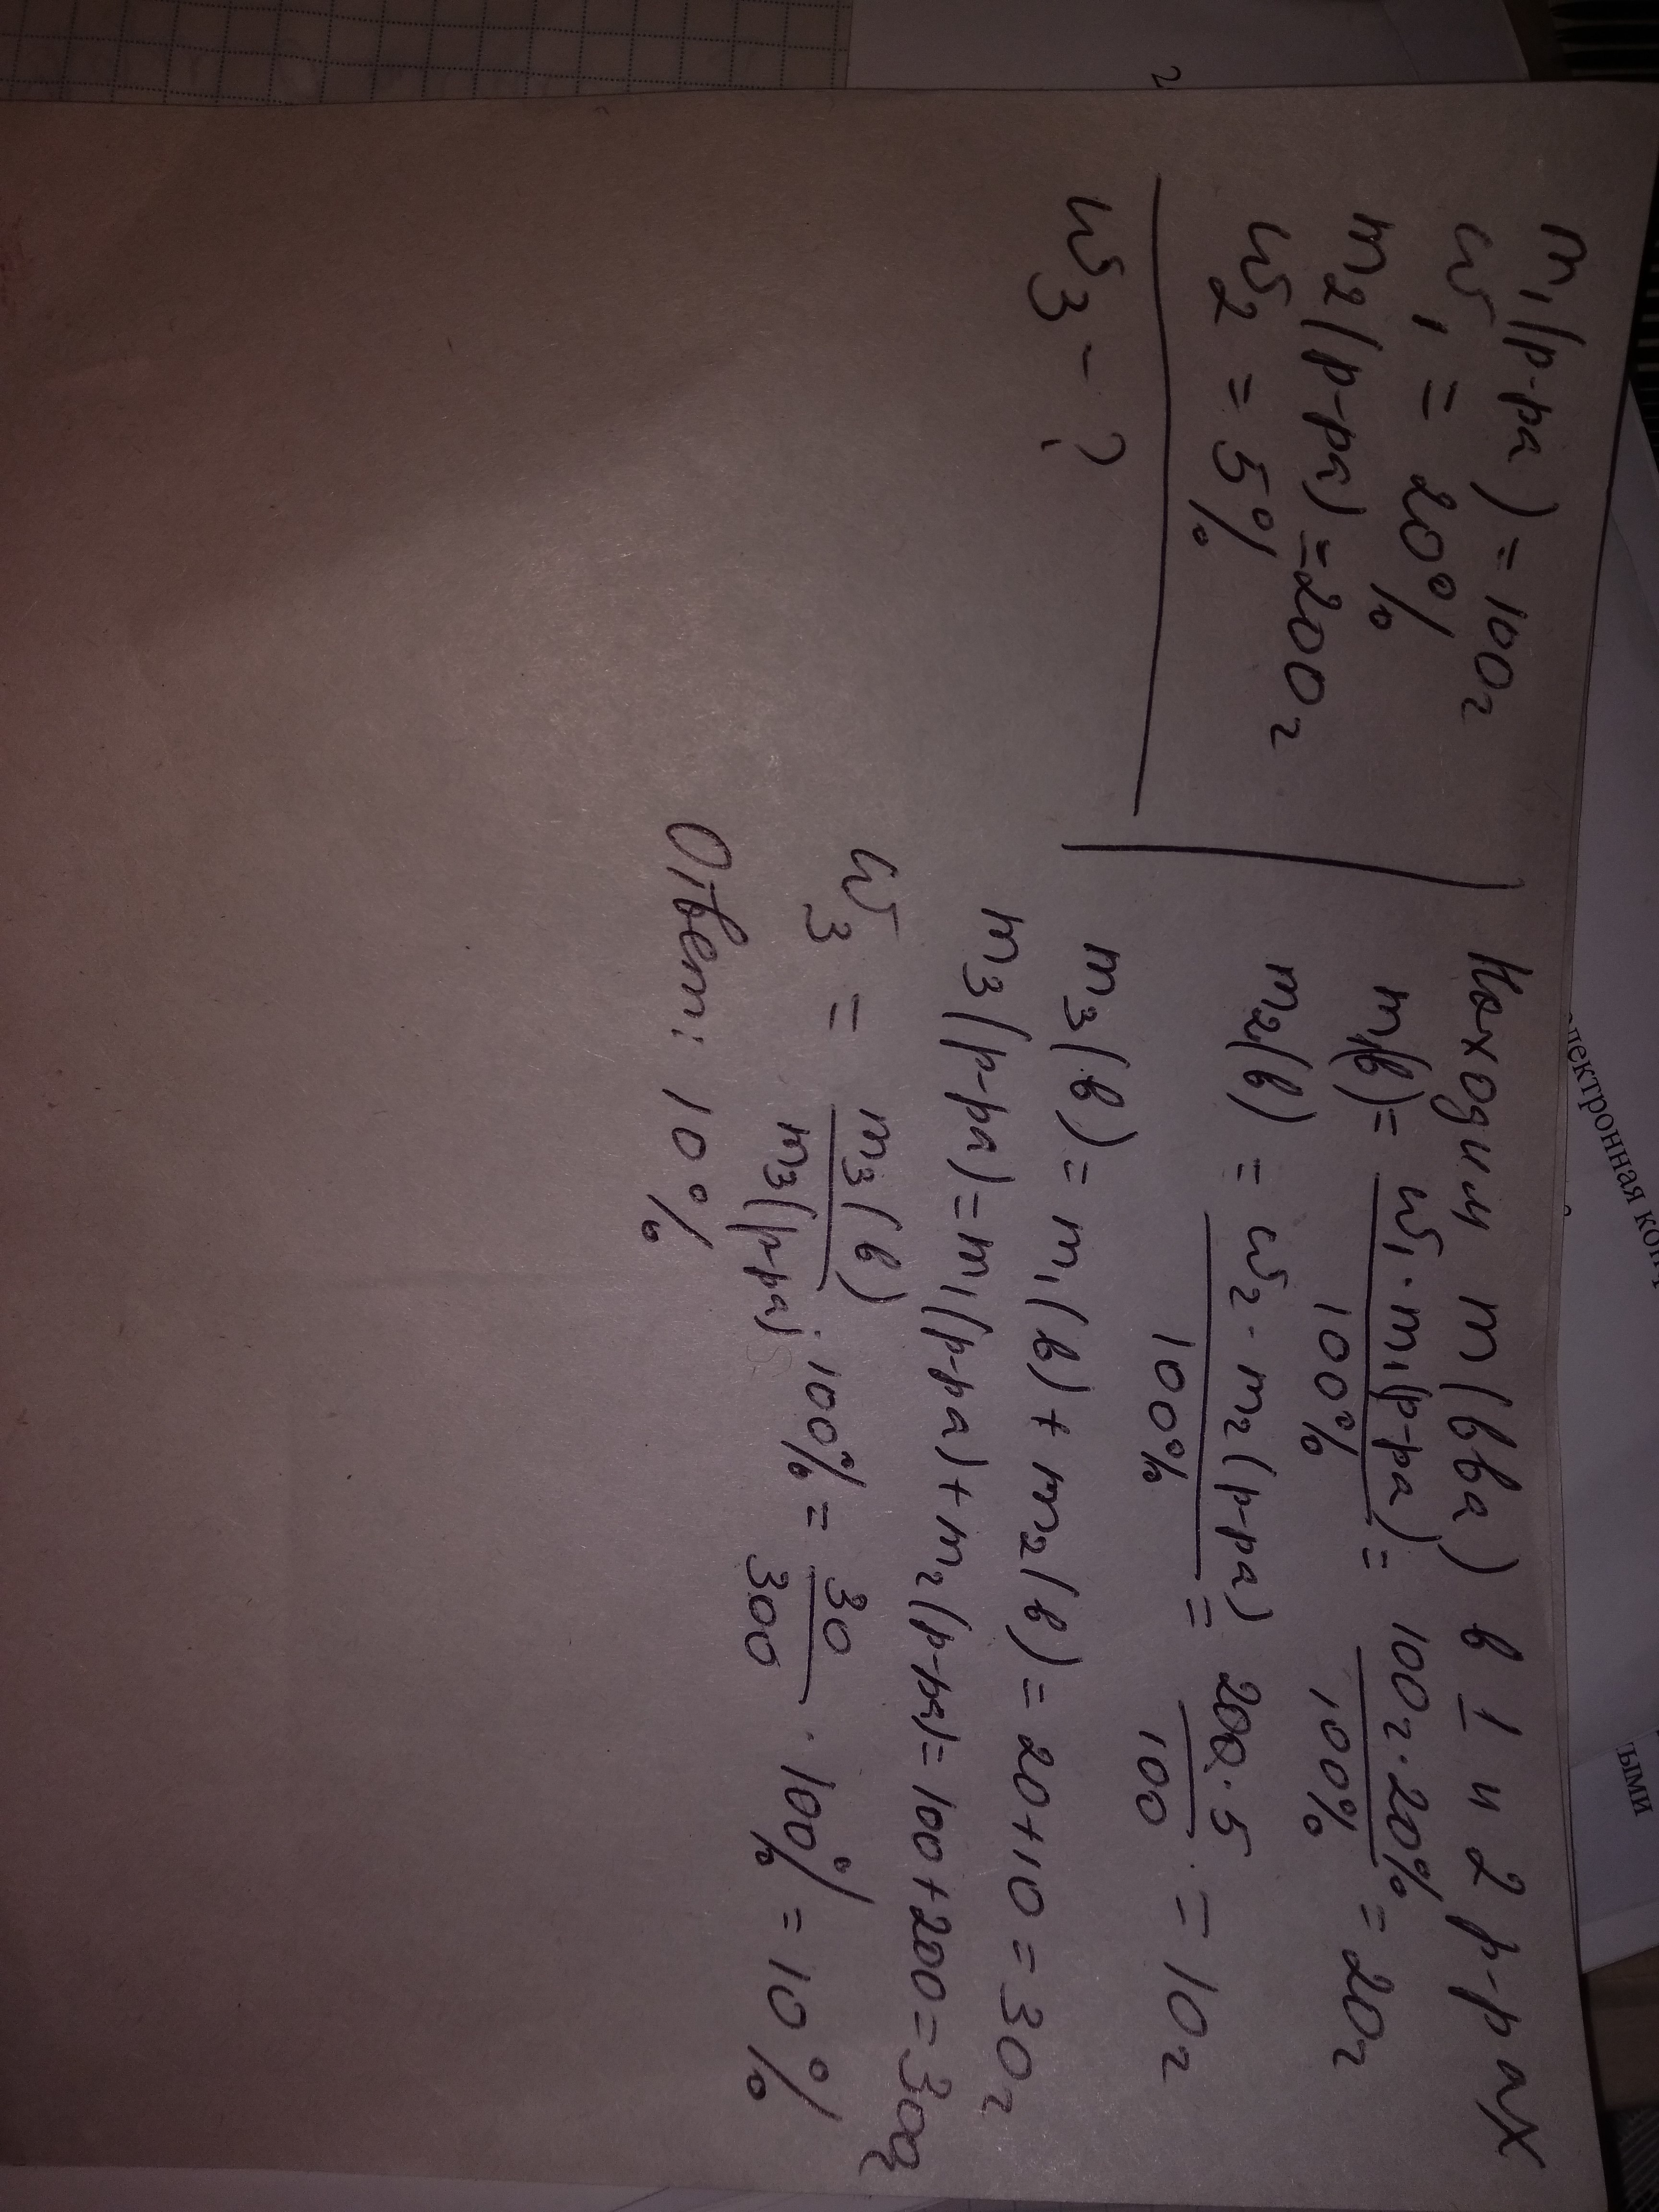 m₁(р-ра) = 100г
ω₁ = 20%
m₂(р-ра) = 200г
ω₂ = 5%
ω₃ - ?
Находим m(вва) в 1 и 2 р-рах
m₁(в) = ω₁ · m₁(р-ра) / 100% = 100г · 20% / 100% = 20г
m₂(в) = ω₂ · m₂(р-ра) / 100% = 200 · 5 / 100 = 10г
m₃(в) = m₁(в) + m₂(в) = 20 + 10 = 30г
m₃(р-ра) = m₁(р-ра) + m₂(р-ра) = 100 + 200 = 300г
ω₃ = m₃(в) / m₃(р-ра) · 100% = 30 / 300 · 100% = 10%
Ответ: 10%
электронная
ыми